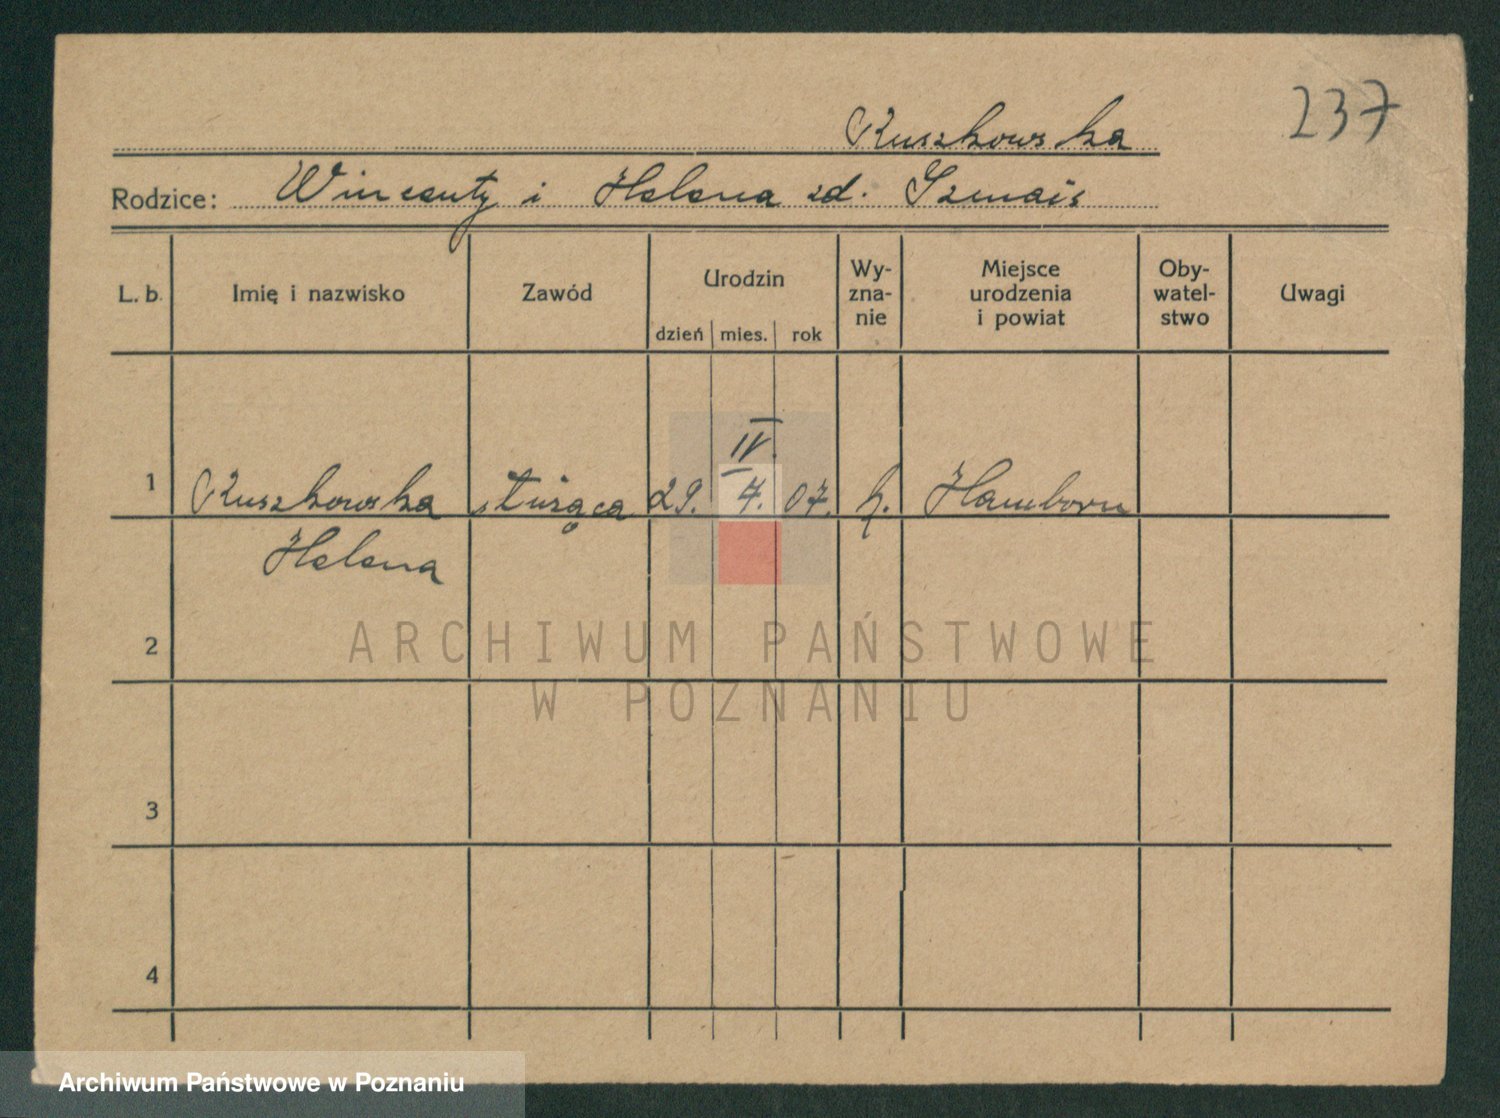 237
Kuszkowska
Rodzice: Wincenty i Helena zd. Szmais
L. b. Imię i nazwisko Zawód Urodzin Wy-zna-nie Miejsce urodzenia i powiat Oby-watel-stwo Uwagi
dzień mies. rok
IV.
1 Kuszkowska służąca 29. 4. 07. k. Hamborn
Helena
2
ARCHIWUM PAŃSTWOWE
W POZNANIU
3
4
Archiwum Państwowe w Poznaniu